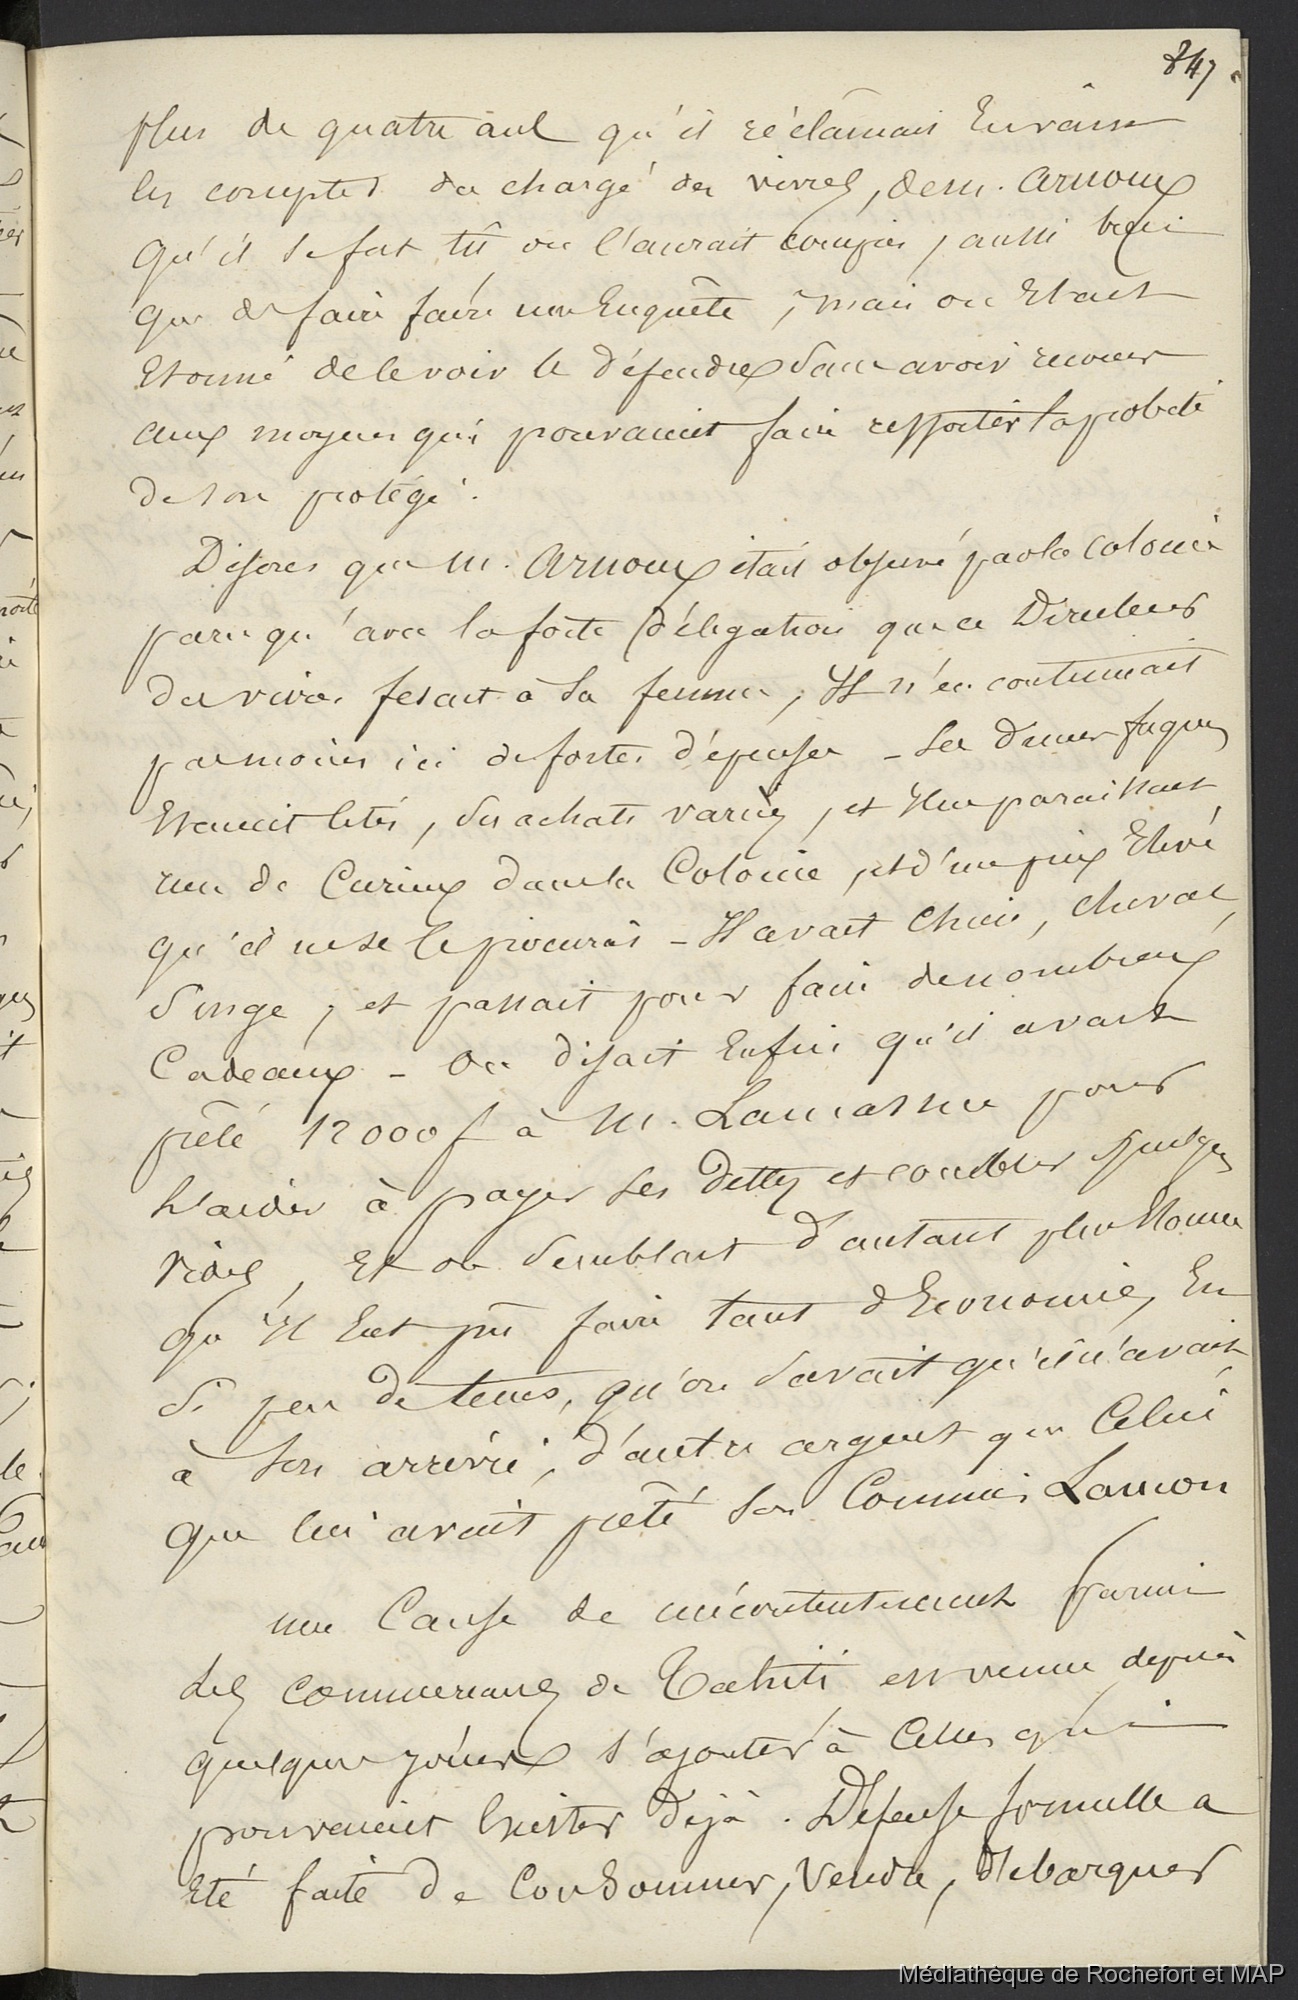 847
plus de quatre ans qu'il réclamait en vain
les comptes du chargé des vivres, de M. Arnoux
qu'il se fut tû on l'aurait compris, aussi bien
que de faire faire une Enquête, mais on Etait
Etonné de le voir le défendre sans avoir recours
aux moyens qui pouvaient faire ressortir la probité
de son protégé.
Disons que M. Arnoux était observé par la colonie
parce qu'avec la forte délégation que ce Directeur
des vivres fesait à sa femme, Il n'en continuait
pas moins ici de fortes dépenses - Ses diners
Etaient cités, ses achats variés, et Il ne paraissait
rien de Curieux dans la Colonie, et d'un prix Elevé
qu'il ne se le procurâs - Il avait chien, cheval,
Singe, et passait pour faire de nombreux
Cadeaux - On disait Enfin qu'il avait
prêté 12000 f à M. Lamasne pour
l'aider à payer ses dettes et combler quelques
vides, Et on semblait d'autant plus Etonné
qu'Il Eut pû faire tant d'Economie, En
si peu de tems, qu'on savait qu'il n'avait
à son arrivée, d'autre argent que Celui
que lui avait prêté son Commis Lamon
une Cause de mécontentement parmi
les commerçans de Tahiti est venue depuis
quelques jours s'ajouter à Celles qui
pouvaient Exister déjà. Défense formelle a
Eté faite de Condamner, Vendre, débarquer
Médiathèque de Rochefort et MAP